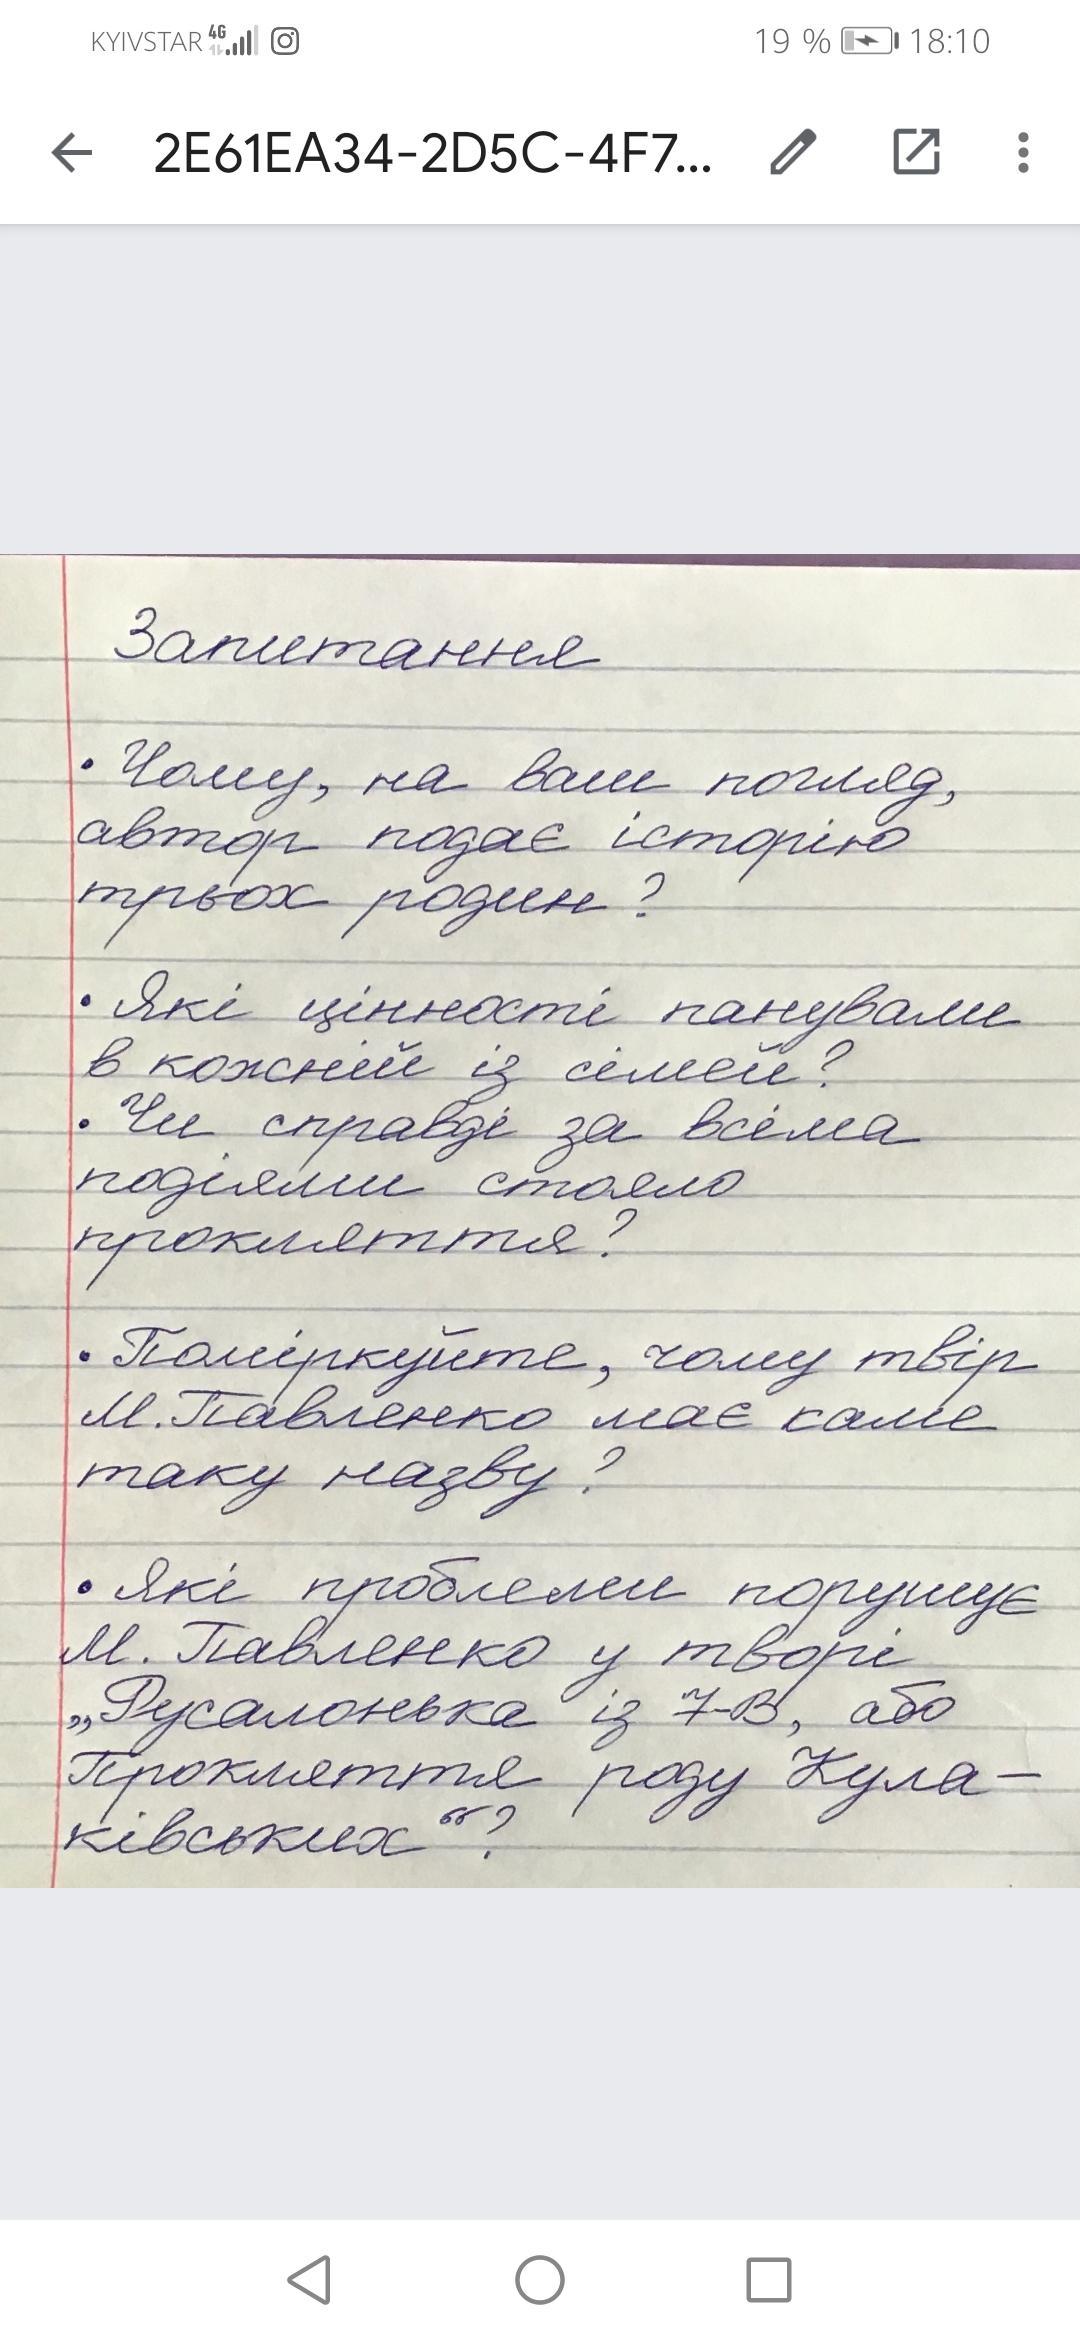 KYIVSTAR 4G 19 % 18:10
2E61EA34-2D5C-4F7...
Запитання
• Чому, на ваш погляд,
автор подає історію
трьох родин?
• Які цінності панували
в кожній із сімей?
• Чи справді за всіма
подіями стояло
прокляття?
• Поміркуйте, чому твір
М. Павленко має саме
таку назву?
• Які проблеми порушує
М. Павленко у творі
„Русалонька із 7-В, або
Прокляття роду Кула-
ківських“?